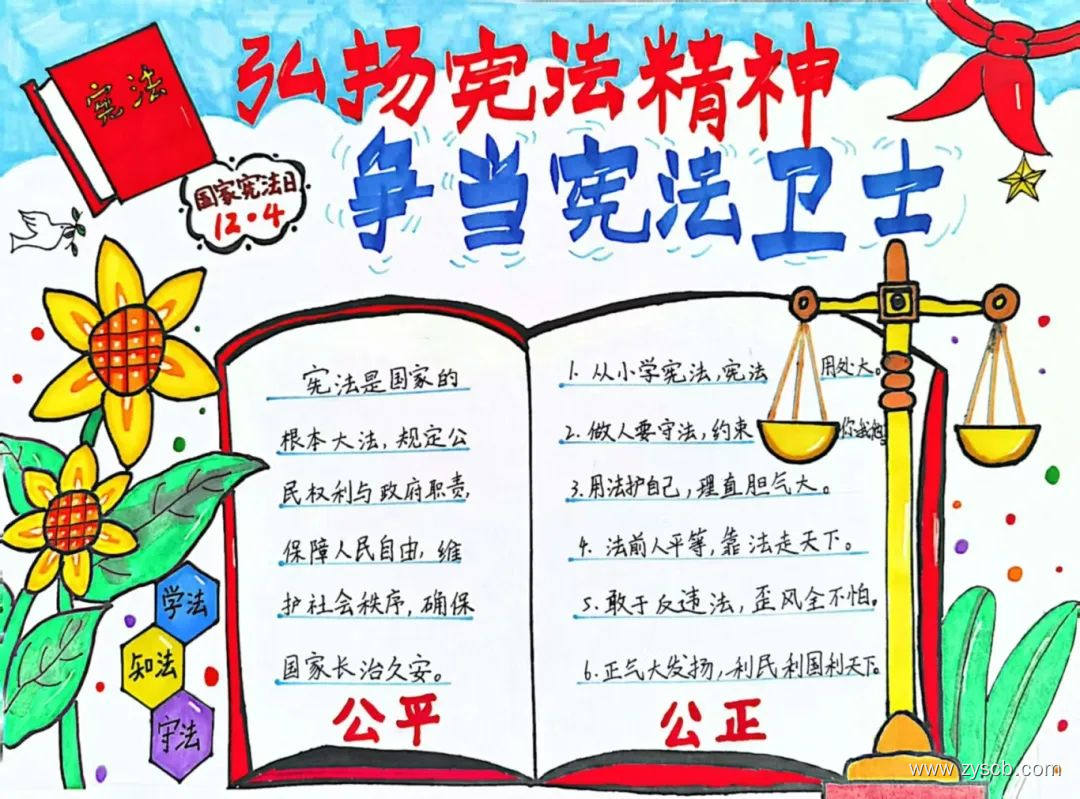 弘扬宪法精神
争当宪法卫士
宪法
国家宪法日
12·4
宪法是国家的
根本大法，规定公
民权利与政府职责，
保障人民自由，维
护社会秩序，确保
国家长治久安。
公平
1. 从小学宪法，宪法 用处大。
2. 做人要守法，约束 你我
3. 用法护自己，理直胆气大。
4. 法前人平等，靠法走天下。
5. 敢于反违法，歪风全不怕。
6. 正气大发扬，利民利国利天下。
公正
学法
知法
守法
www.zyscb.com